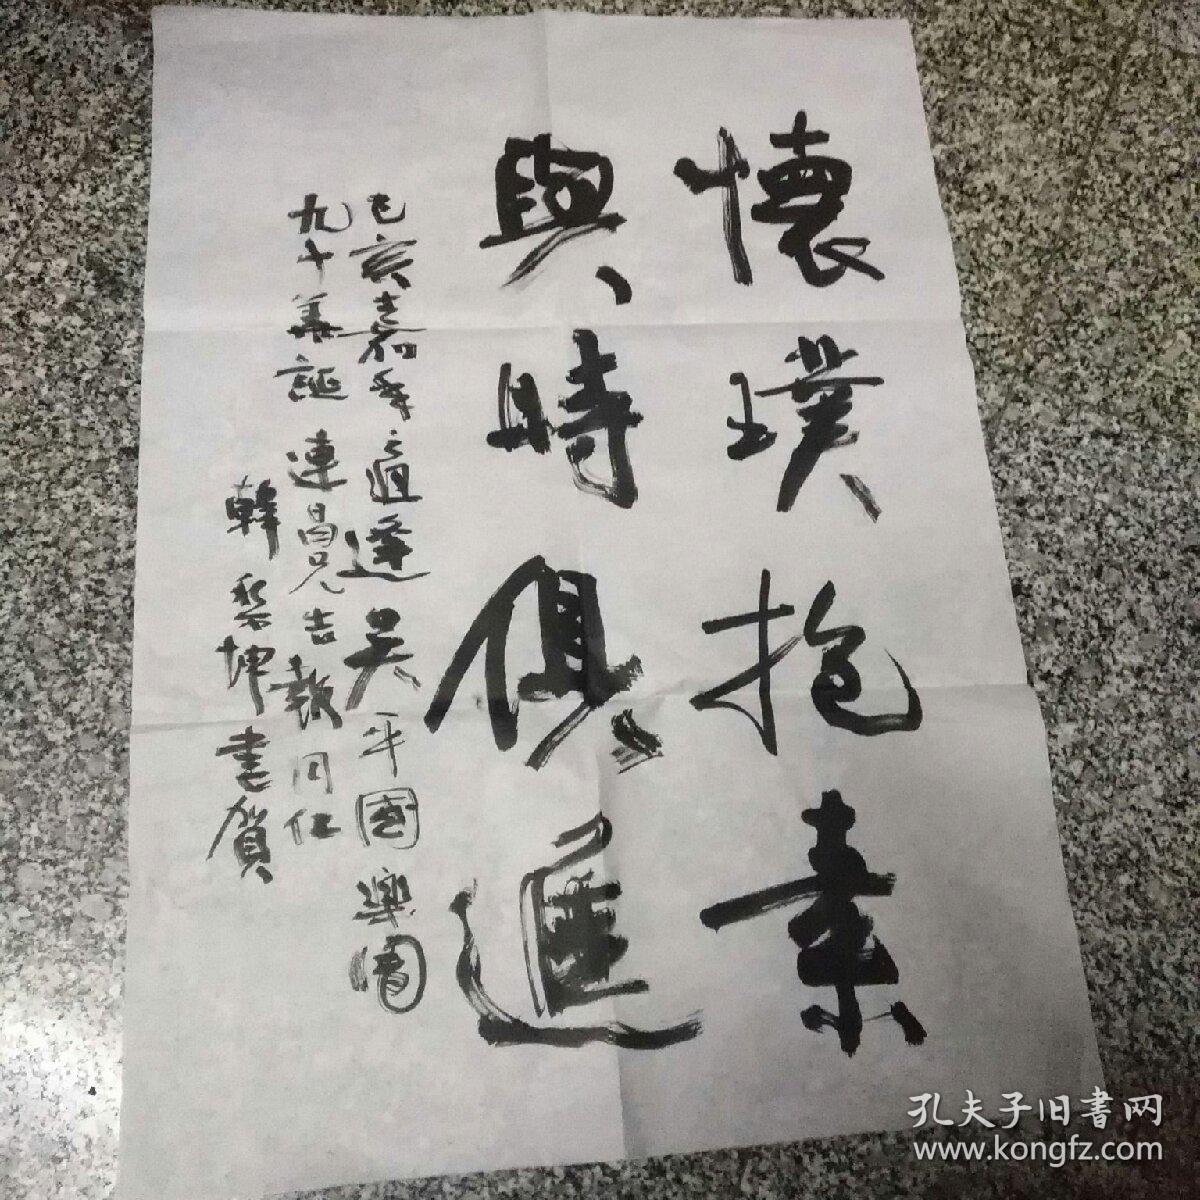 懷璞抱素
與時俱進
己亥嘉年適逢吳平國樂團
九十華誕連昌兄吉報同仁
韓黎坤書賀
孔夫子旧書网
www.kongfz.com